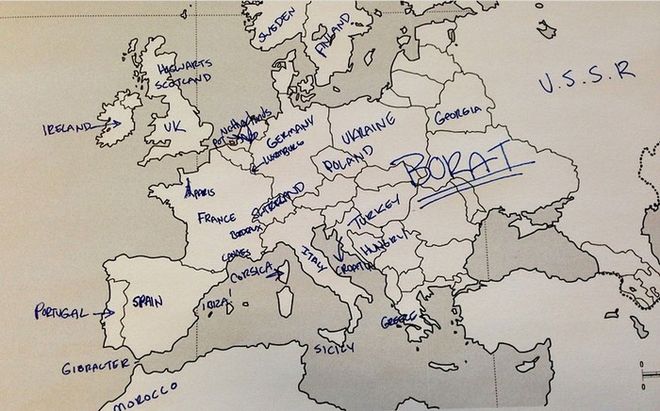 SWEDEN
FINLAND
HOGWARTS
SCOTLAND
U.S.S.R
GEORGIA
IRELAND
UK
GERMANY
UKRAINE
POLAND
BORAT
LUXEMBURG
PARIS
FRANCE
TURKEY
HUNGRY
BORDEAUX
CANNES
CORSICA
ITALY
CROATIA
PORTUGAL
SPAIN
IBIZA
GREECE
GIBRALTER
SICILY
MOROCCO